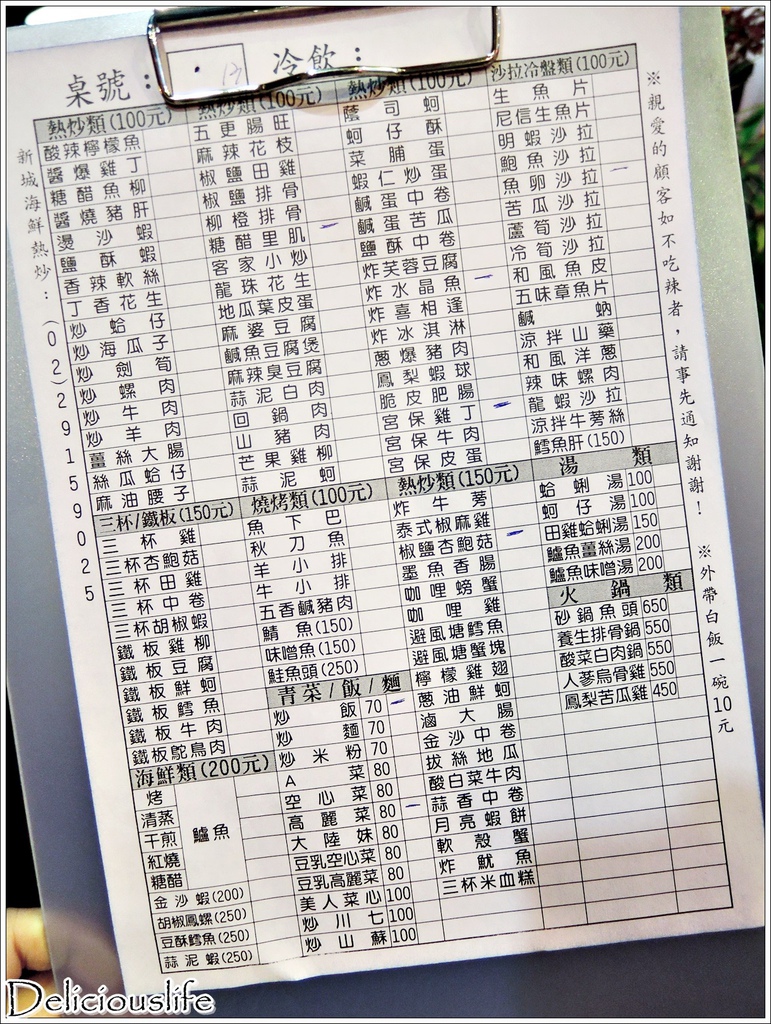 桌號：
冷飲：
熱炒類(100元)
酸辣檸檬魚
醬爆雞丁
糖醋魚柳
醬燒豬肝
燙沙蝦
鹽酥蝦
香辣軟絲
丁香花生
炒蛤仔
炒海瓜子
炒劍筍
炒螺肉
炒牛肉
炒羊肉
薑絲大腸
絲瓜蛤仔
麻油腰子
三杯/鐵板(150元)
三杯雞
三杯杏鮑菇
三杯田雞
三杯中卷
三杯胡椒蝦
鐵板雞柳
鐵板豆腐
鐵板鮮蚵
鐵板鱈魚
鐵板牛肉
鐵板鴕鳥肉
海鮮類(200元)
烤
清蒸
干煎
紅燒
糖醋
鱸魚
金沙蝦(200)
胡椒鳳螺(250)
豆酥鱈魚(250)
蒜泥蝦(250)
熱炒類(100元)
五更腸旺
麻辣花枝
椒鹽田雞
椒鹽排骨
柳橙排骨
糖醋里肌
客家小炒
龍珠花生
地瓜葉皮蛋
麻婆豆腐
鹹魚豆腐煲
麻辣臭豆腐
蒜泥白肉
回鍋肉
山豬肉
芒果雞柳
蒜泥蚵
燒烤類(100元)
魚下巴
秋刀魚
羊小排
牛小排
五香鹹豬肉
鯖魚(150)
味噌魚(150)
鮭魚頭(250)
青菜/飯/麵
炒飯 70
炒麵 70
炒米粉 70
A菜 80
空心菜 80
高麗菜 80
大陸妹 80
豆乳空心菜 80
豆乳高麗菜 80
美人菜心 100
炒川七 100
炒山蘇 100
熱炒類(100元)
蔭司蚵
蚵仔酥
菜脯蛋
蝦仁炒蛋
鹹蛋中卷
鹹蛋苦瓜
鹽酥中卷
炸芙蓉豆腐
炸水晶魚
炸喜相逢
炸冰淇淋
蔥爆豬肉
鳳梨蝦球
脆皮肥腸
宮保雞丁
宮保牛肉
宮保皮蛋
熱炒類(150元)
炸牛蒡
泰式椒麻雞
椒鹽杏鮑菇
墨魚香腸
咖哩螃蟹
咖哩雞
避風塘鱈魚
避風塘蟹塊
檸檬雞翅
蔥油鮮蚵
滷大腸
金沙中卷
拔絲地瓜
酸白菜牛肉
蒜香中卷
月亮蝦餅
軟殼蟹
炸魷魚
三杯米血糕
沙拉冷盤類(100元)
生魚片
尼信生魚片
明蝦沙拉
鮑魚沙拉
魚卵沙拉
苦瓜沙拉
蘆筍沙拉
冷筍沙拉
和風魚皮
五味章魚片
鹹蚋
涼拌山藥
和風洋蔥
辣味螺肉
龍蝦沙拉
涼拌牛蒡絲
鱈魚肝(150)
湯類
蛤蜊湯 100
蚵仔湯 100
田雞蛤蜊湯 150
鱸魚薑絲湯 200
鱸魚味噌湯 200
火鍋類
砂鍋魚頭 650
養生排骨鍋 550
酸菜白肉鍋 550
人蔘烏骨雞 550
鳳梨苦瓜雞 450
新城海鮮熱炒：(02)29159025
※親愛的顧客如不吃辣者，請事先通知謝謝！ ※外帶白飯一碗10元
Deliciouslife